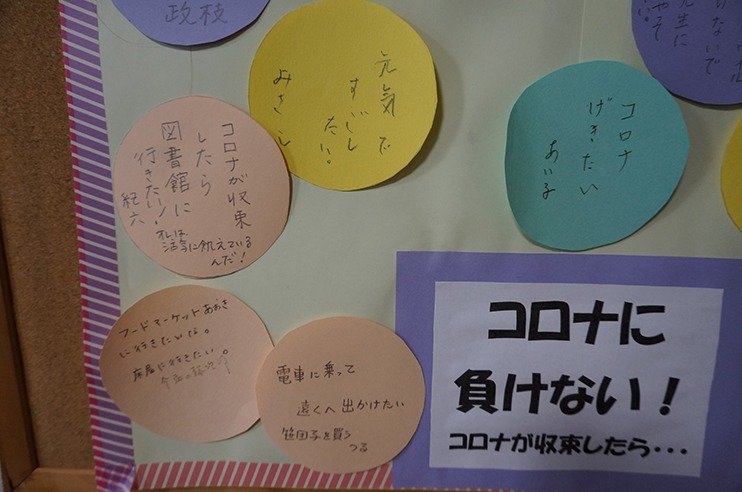 政枝
元気で
すごし
たい。
みさ子
コロナ
げきたい
あい子
コロナが収束
したら
図書館に
行きたい!
紀六
オレは
活字に飢えている
んだ!
フードマーケットあおき
に行きたいな。
床屋に行きたい。
電車に乗って
遠くへ出かけたい
笹団子を買う
つる
コロナに
負けない!
コロナが収束したら・・・